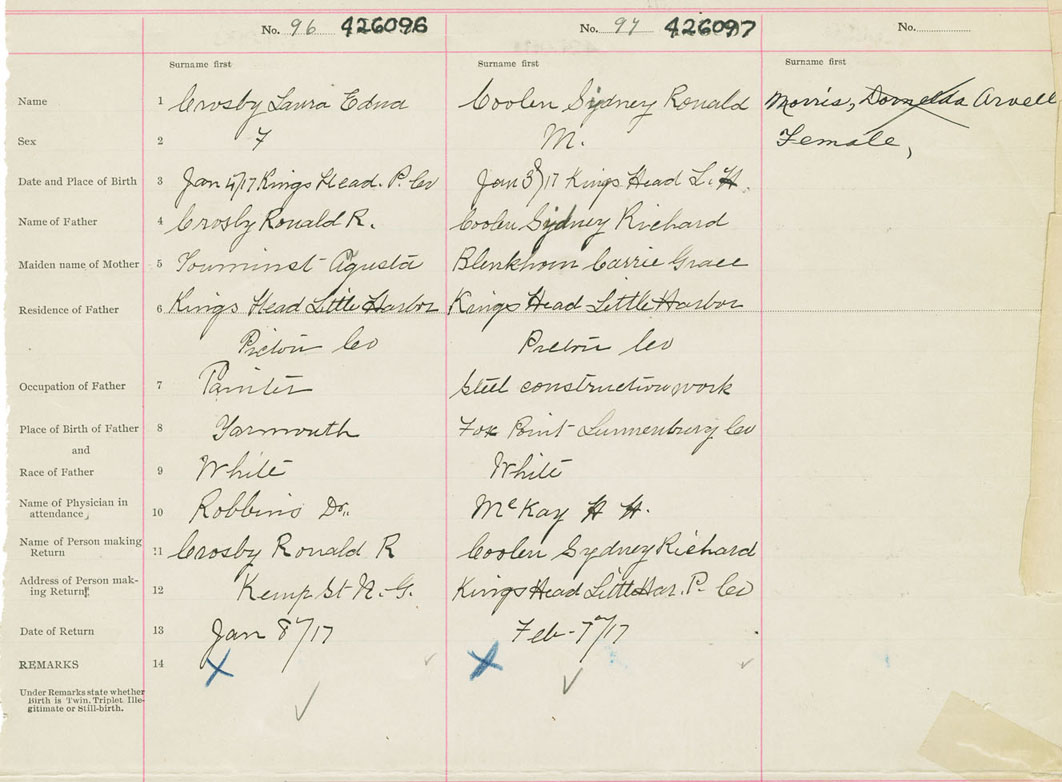 No. 96 426096 No. 97 426097 No.
Surname first Surname first Surname first
Name 1 Crosby Laura Edna Coolen Sydney Ronald Morris, Dornelda Arvell
Sex 2 F M. Female,
Date and Place of Birth 3 Jan 4/17 Kings Head. P. Co Jan 3/17 Kings Head L. H.
Name of Father 4 Crosby Ronald R. Coolen Sydney Richard
Maiden name of Mother 5 Agusta Blenkhorn Carrie Grace
Residence of Father 6 Kings Head Little Harbor Kings Head Little Harbor
Pictou Co Pictou Co
Occupation of Father 7 Painter Steel construction work
Place of Birth of Father 8 Yarmouth Fox Point Lunnenburg Co
and
Race of Father 9 White White
Name of Physician in
attendance, 10 Robbins Dr. McKay H H.
Name of Person making
Return 11 Crosby Ronald R Coolen Sydney Richard
Address of Person mak-
ing Return 12 Kemp St N. G. Kings Head Little Har. P. Co
Date of Return 13 Jan 8/17 Feb - 7th/17
REMARKS 14
Under Remarks state whether
Birth is Twin, Triplet, Ille-
gitimate or Still-birth.